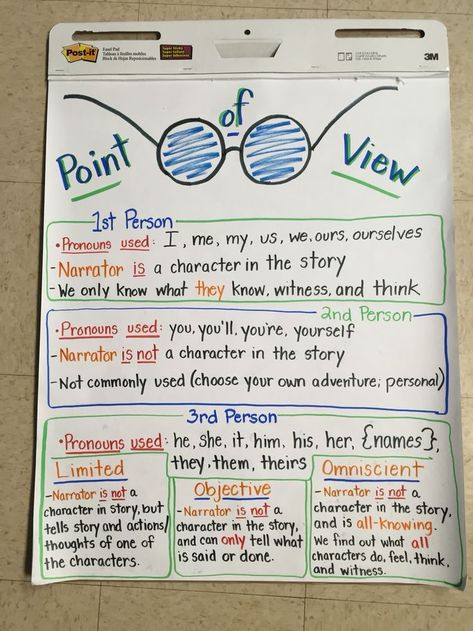 Post-it
Easel Pad
Tableau à feuilles mobiles
Block de Hojas Reposicionables
Super Sticky
3M
Point of View
1st Person
• Pronouns used: I, me, my, us, we, ours, ourselves
- Narrator is a character in the story
- We only know what they know, witness, and think
2nd Person
• Pronouns used: you, you'll, you're, yourself
- Narrator is not a character in the story
- Not commonly used (choose your own adventure; personal)
3rd Person
• Pronouns used: he, she, it, him, his, her, {names},
they, them, theirs
Limited
- Narrator is not a
character in story, but
tells story and actions/
thoughts of one of
the characters.
Objective
- Narrator is not a
character in the story,
and can only tell what
is said or done.
Omniscient
- Narrator is not a
character in the story,
and is all-knowing.
We find out what all
characters do, feel, think,
and witness.